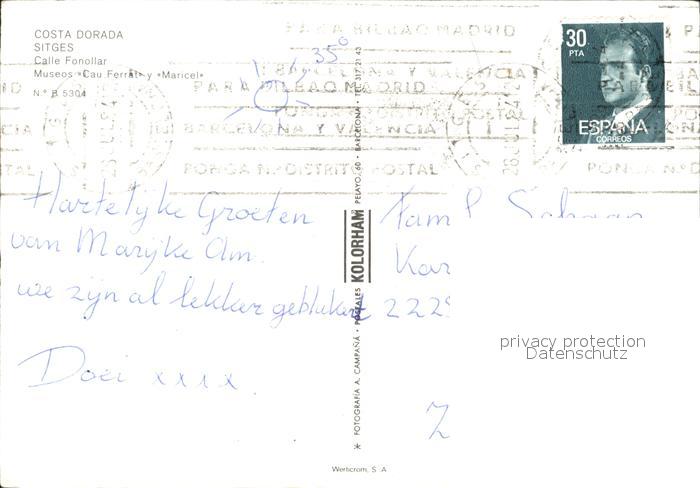 COSTA DORADA
SITGES
Calle Fonollar
Museos «Cau Ferrat» y «Maricel»
N.º B 5304
35°
30
PTA
ESPAÑA
CORREOS
PARA BILBAO MADRID
BARCELONA Y VALENCIA
PONGA N.º DISTRITO POSTAL
PARA BILBAO MADRID
BARCELONA Y VALENCIA
PONGA N.º DISTRITO POSTAL
Hartelijke Groeten
van Marijke Am.
we zijn al lekker geblukert
Doei xxxx
Fam
Kar
222
Z
✶ FOTOGRAFIA A. CAMPAÑA · POSTALES KOLORHAM PELAYO, 60 · BARCELONA · TEL. 317 21 43
privacy protection
Datenschutz
Werticrom, S. A